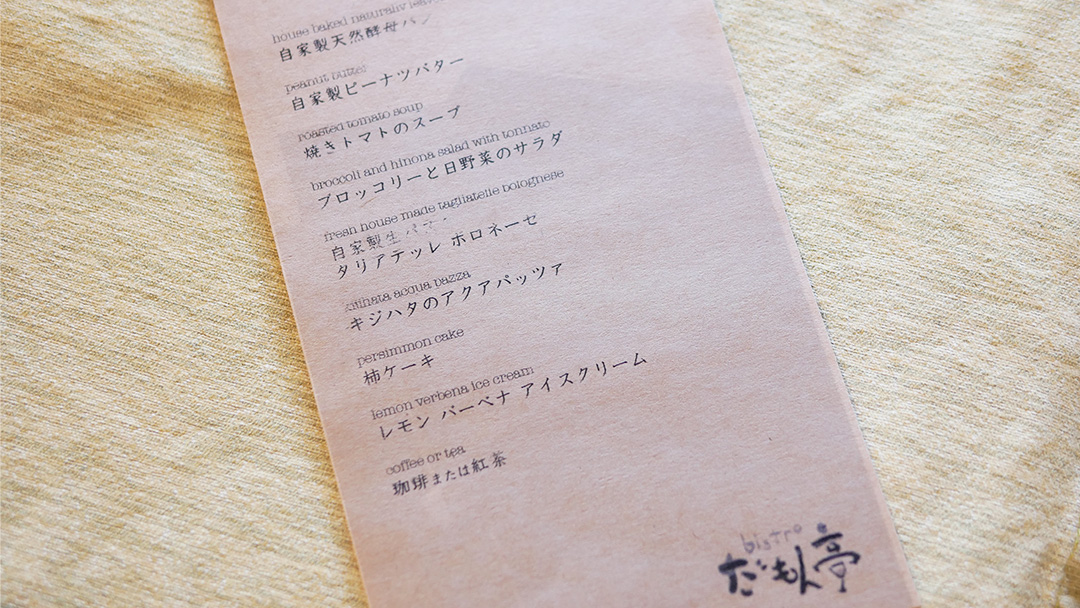 house baked naturally
自家製天然酵母パン
peanut butter
自家製ピーナツバター
roasted tomato soup
焼きトマトのスープ
broccoli and hinona salad with tonnato
ブロッコリーと日野菜のサラダ
fresh house made tagliatelle bolognese
自家製生パスタ
タリアテッレ ボロネーゼ
kijihata acqua pazza
キジハタのアクアパッツァ
persimmon cake
柿ケーキ
lemon verbena ice cream
レモン バーベナ アイスクリーム
coffee or tea
珈琲または紅茶
bistro
だもん亭